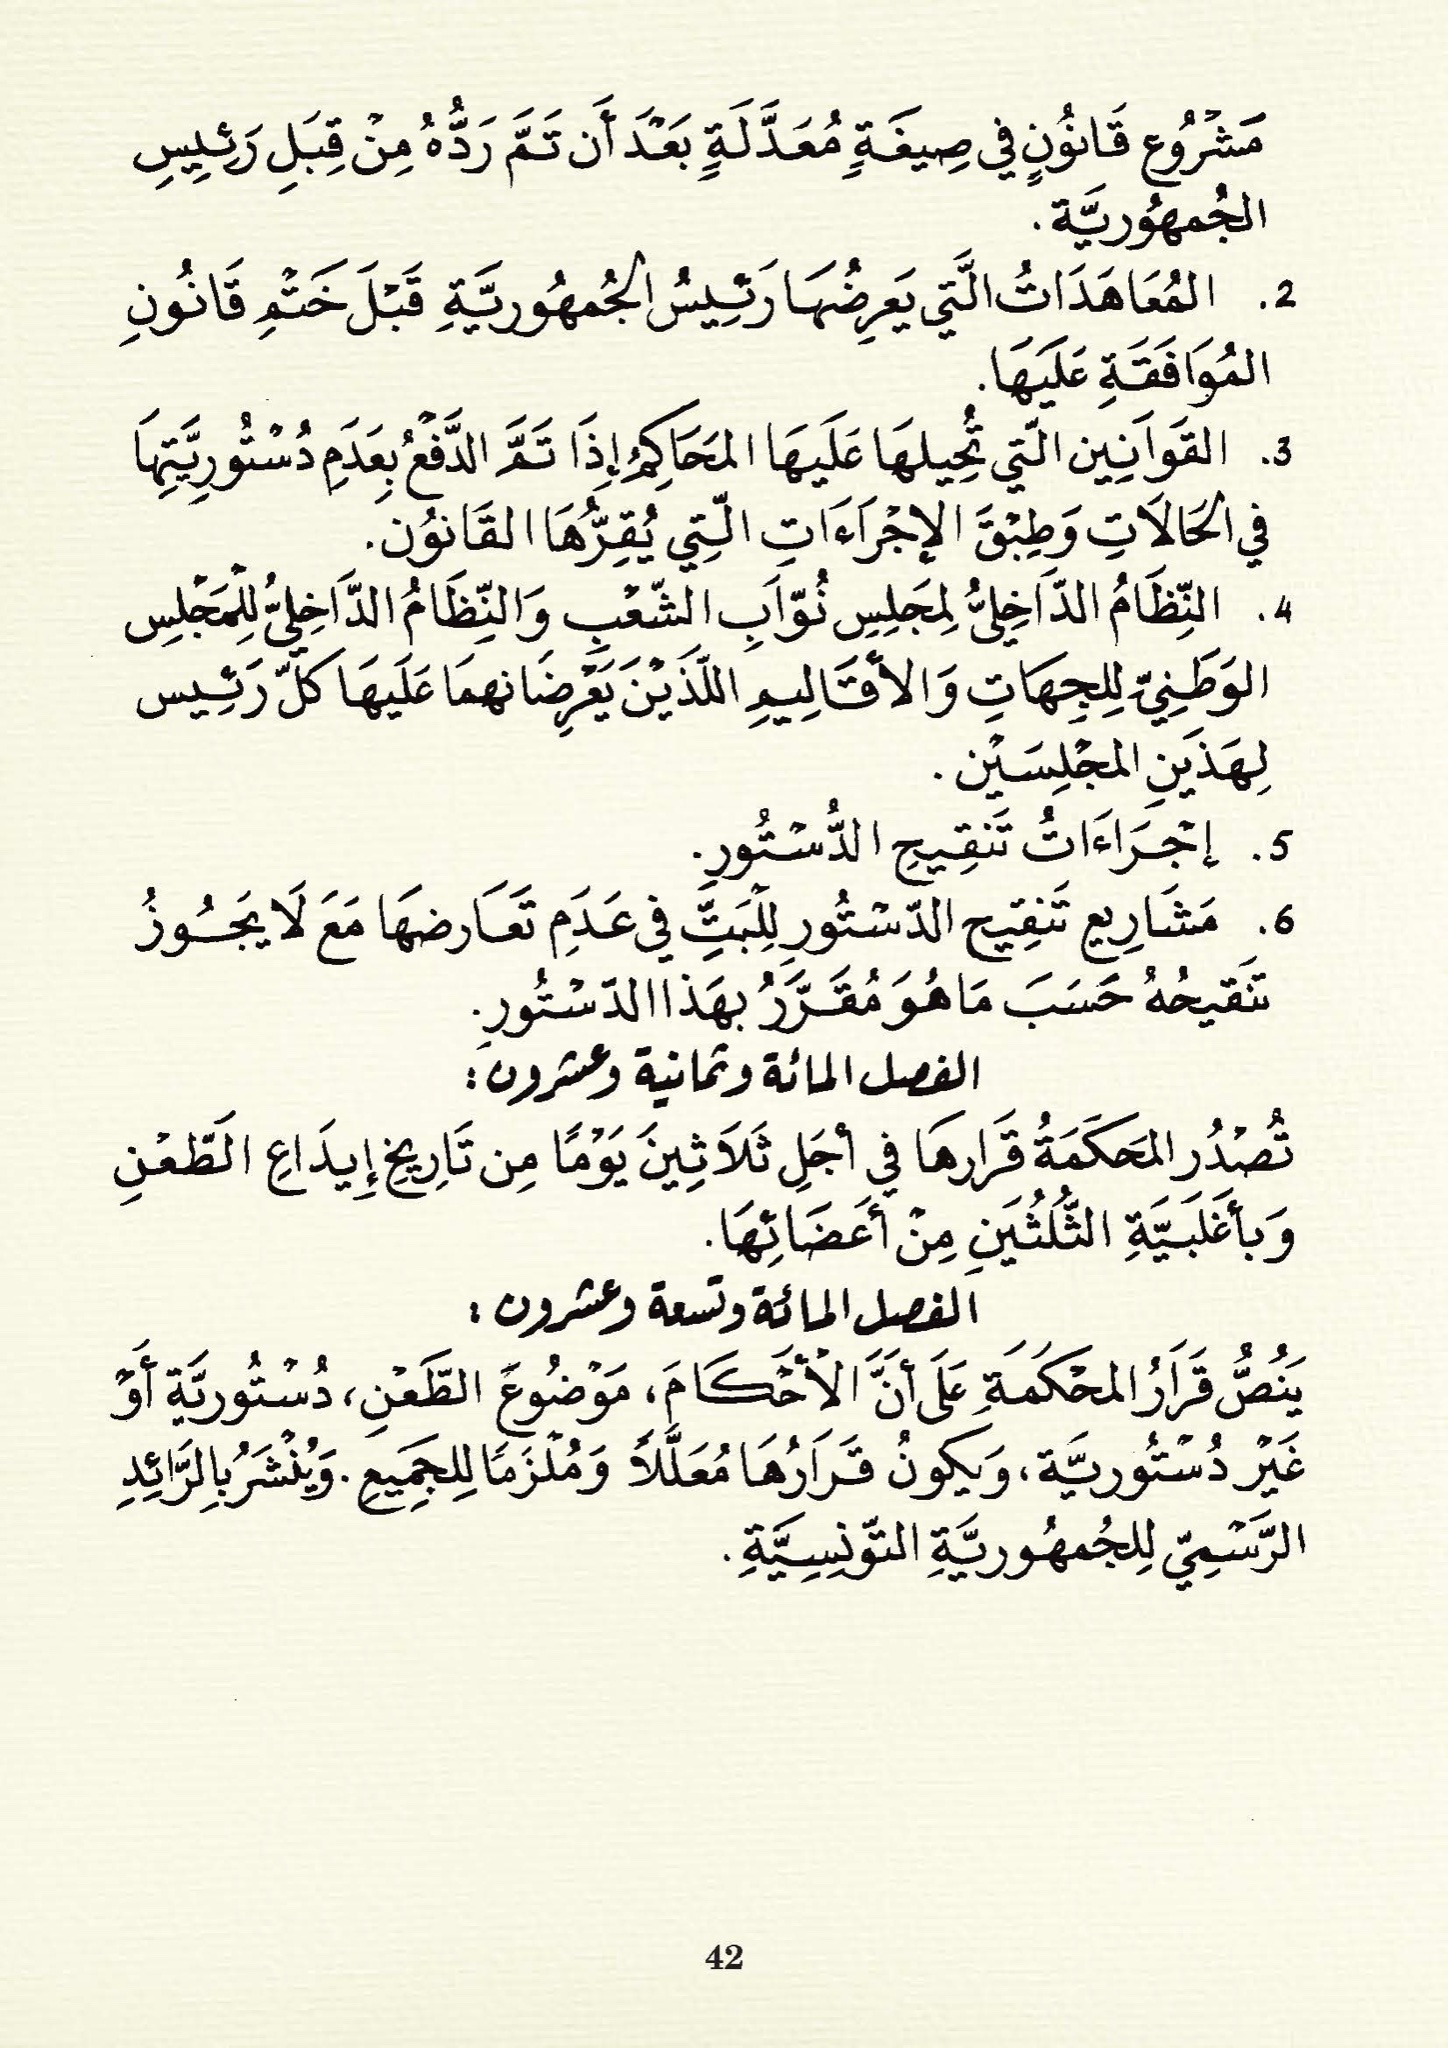 مَشْرُوع قَانُونٍ في صِيغَةٍ مُعَدَّلَةٍ بَعْدَ أَن تَمَّ رَدُّهُ مِنْ قِبَلِ رَئِيسِ
الجُمهُوريَّة.
2. المُعَاهَدَاتُ الَّتي يَعرِضُهَا رَئِيسُ الجُمهُوريَّةِ قَبْلَ خَتْمِ قَانُونِ
المُوَافَقَةِ عَلَيهَا.
3. القَوَانِين الَّتي تُحِيلهَا عَلَيهَا المَحَاكِمُ إذَا تَمَّ الدَّفْعُ بِعَدَمِ دُسْتُورِيَّتِهَا
في الحَالَاتِ وَطِبْقَ الإجْرَاءَاتِ الَّتِي يُقِرُّهَا القَانُون.
4. النِّظَامُ الدَّاخِلِيُّ لِمَجلِسِ نُوّابِ الشّعْبِ وَالنِّظَامُ الدَّاخِلِيُّ لِلْمَجْلِسِ
الوَطَنِيِّ لِلجِهَاتِ وَالأقَالِيمِ اللّذَيْنَ يَعْرِضَانهمَا عَلَيهَا كلّ رَئِيس
لِهَذَينِ المجْلِسَيْن.
5. إجْرَاءَاتُ تَنقِيحِ الدُّسْتُورِ.
6. مَشَارِيع تَنقِيح الدّسْتُورِ لِلْبَتِّ في عَدَمِ تَعَارضهَا مَعَ لَا يَجُوزُ
تَنقيحُهُ حَسَبَ مَا هُوَ مُقَرَّرُ بهَذا الدّسْتُورِ.
الفصل المائة وثمانية وعشرون:
تُصْدُر المَحَكَمَةُ قَرَارهَا في أجَلِ ثَلَاثِينَ يَوْمًا مِن تَارِيخِ إِيدَاعِ الطَّعْنِ
وَبأغَلَبَيَّةِ الثُّلُثَينِ مِنْ أعَضَائِهَا.
الفصل المائة وتسعة وعشرون:
يَنُصُّ قَرَارُ المحْكَمَةِ عَلَى أنَّ الأحْكَامَ، مَوْضُوعَ الطَّعْنِ، دُسْتُوريَّة أَوْ
غَيْر دُسْتُوريَّة، وَيكونُ قَرَارُهَا مُعَلَّلاً وَمُلْزَمًا لِلجَمِيعِ. وَيُنْشَرُ بِالرَّائِدِ
الرَّسْمِيّ لِلجُمهُوريَّةِ التّونِسِيَّةِ.
42